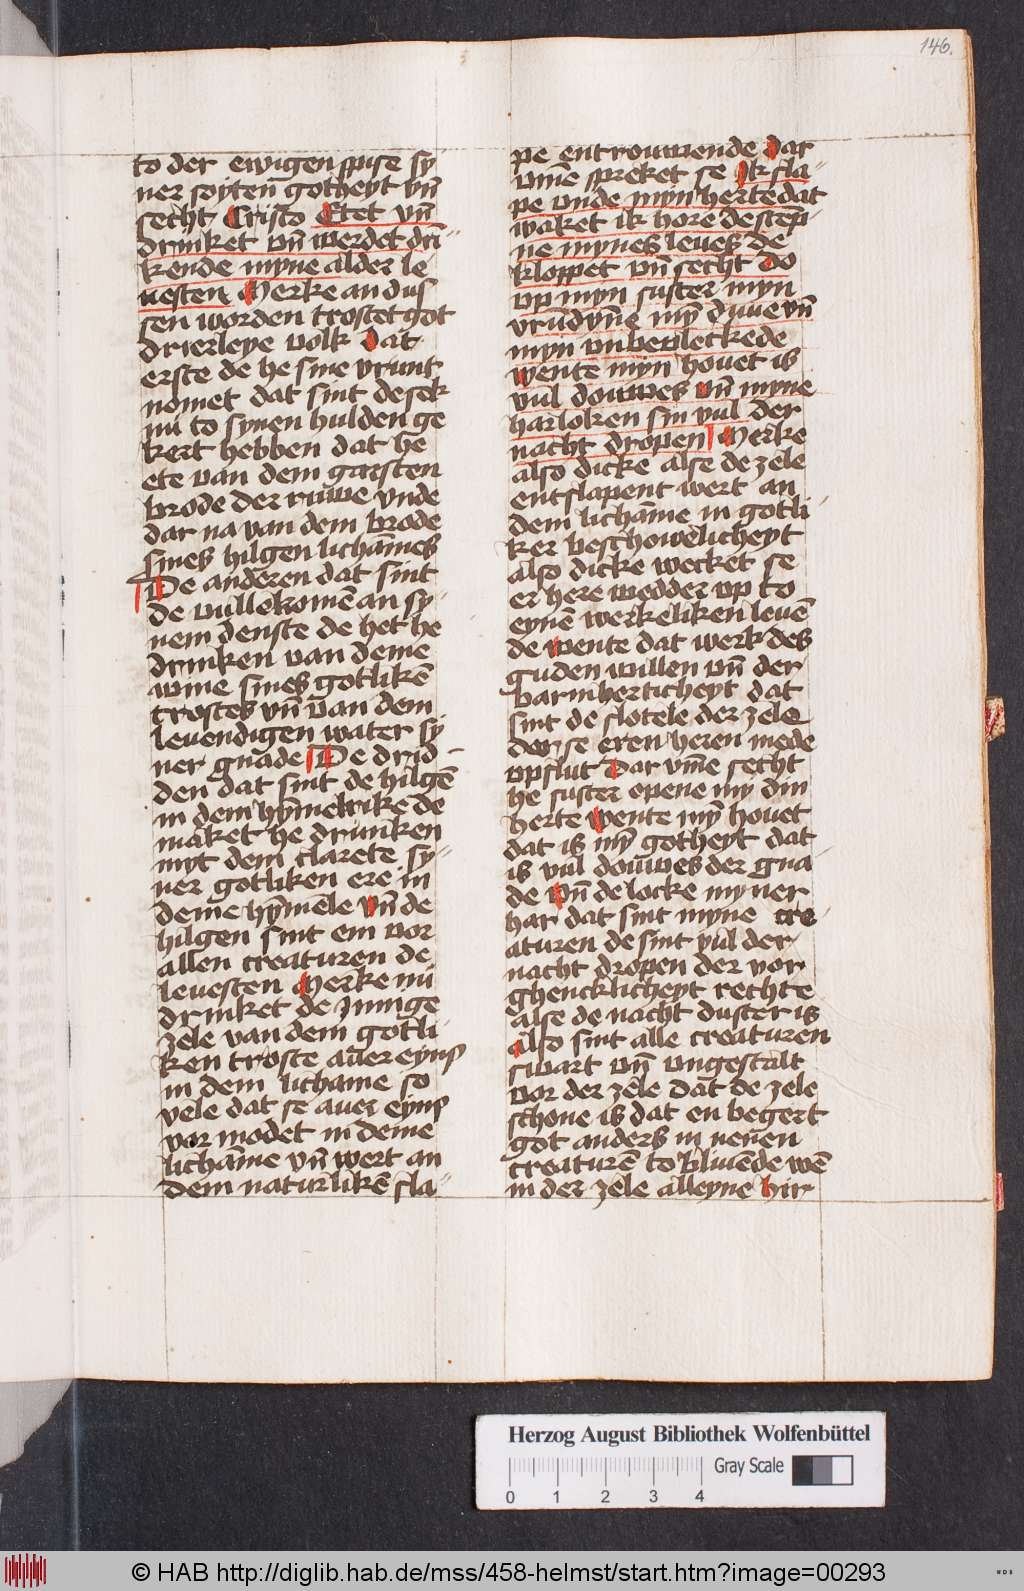 146.
to der ewigen spise sy
ner soyten gotheyt vn̄
secht Cristo Etet vn̄
drinket vn̄ werdet drū-
kende myne alder le
uesten Merke an dus
sen worden trostet got
drierleye volk dat
erste de he sine vrunt
nomet dat sint de sek
nu to synen hulden ge
kert hebben dat he
ete van dem garsten
brode der ruwe vnde
dar na van dem brode
sines hilgen lichāmes
De anderen dat sint
de vullekomē an sy-
nem denste de het he
drinken van deme
wine sines gotlikē
trostes vn̄ van dem
leuendigen water sy
ner gnade De drid-
den dat sint de hilgē
in dem hȳmelrike de
maket he drunken
myt dem clarete sy-
ner gotliken ere in
deme hȳmele vn̄ de
hilgen sint em vor
allen creaturen de
leuesten Merke nu
drinket de Innige
zele van dem gotli-
ken troste auer eyns
in dem lichame so
vele dat se auer eyns
vor modet in deme
lichāme vn̄ wert an
dem naturlikē sla-
pe entrouwende dar
vm̄e spreket se Ik sla-
pe vnde myn herte dat
waket ik hore de stēp-
ne mynes leues de
kloppet vn̄ secht do
vp myn suster myn
vrūdyn̄e mȳ duue vn̄
myn vnbevleckede
wente myn houet is
vul douwes vn̄ myne
harloken sin vul der
nacht dropen Merke
also dicke alse de zele
entslapent wert an
dem lichāme in gotli-
ker beschowelicheyt
also dicke wecket se
er here wedder vp to
eynē werkeliken leuē
de wente dat werk des
guden willen vn̄ der
barmherticheyt dat
sint de slotele der zele
dor se eren heren mede
vpslut Dar vm̄e secht
he suster opene my din
herte wente mȳ houet
dat is mȳ gotheyt dat
is vul douwes der gna-
de vn̄ de locke myner
har dat sint myne cre-
aturen de sint vul der
nacht dropen der vor
ghencklicheyt rechte
alse de nacht duster is
Also sint alle creaturen
swart vn̄ vngestalt
vor der zele dat de zele
schone is dat en begert
got anders in nenen
creaturē to bliuēde wē
in der zele alleyne hir
Herzog August Bibliothek Wolfenbüttel
Gray Scale
0 1 2 3 4
© HAB http://diglib.hab.de/mss/458-helmst/start.htm?image=00293